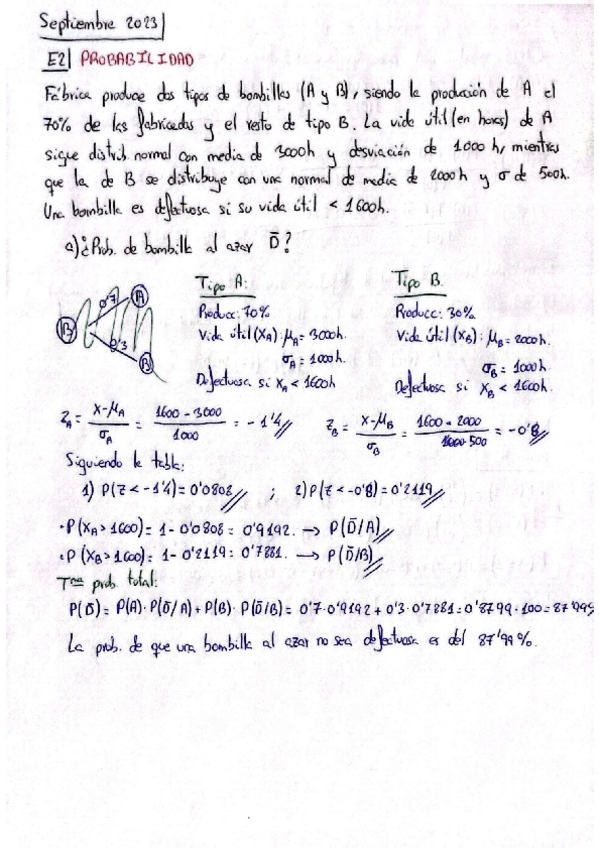 Septiembre 2023
E2 PROBABILIDAD
Fábrica produce dos tipos de bombillas (A y B), siendo la producción de A el
70% de las fabricadas y el resto de tipo B. La vida útil (en horas) de A
sigue distrib. normal con media de 3000h y desviación de 1000 h, mientras
que la de B se distribuye con una normal de media de 2000h y σ de 500h.
Una bombilla es defectuosa si su vida útil < 1600h.
a) ¿Prob. de bombilla al azar D̅?
Tipo A: Tipo B.
Producc: 70% Producc: 30%
Vida útil (XA): μA = 3000h. Vida útil (XB): μB = 2000h.
σA = 1000h. σB = 1000h.
Defectuosa si XA < 1600h Defectuosa si XB < 1600h.
B 0'7 A
0'3 B
ZA = X-μA / σA = 1600 - 3000 / 1000 = -1'4 ZB = X-μB / σB = 1600 - 2000 / 500 = -0'8
Siguiendo la tabla:
1) P(Z < -1'4) = 0'0808 ; 2) P(Z < -0'8) = 0'2119
· P(XA > 1600) = 1 - 0'0808 = 0'9192. → P(D̅/A)
· P(XB > 1600) = 1 - 0'2119 = 0'7881. → P(D̅/B)
Tma prob. total:
P(D̅) = P(A) · P(D̅/A) + P(B) · P(D̅/B) = 0'7 · 0'9192 + 0'3 · 0'7881 = 0'8799 · 100 = 87'99%
La prob. de que una bombilla al azar no sea defectuosa es del 87'99%.